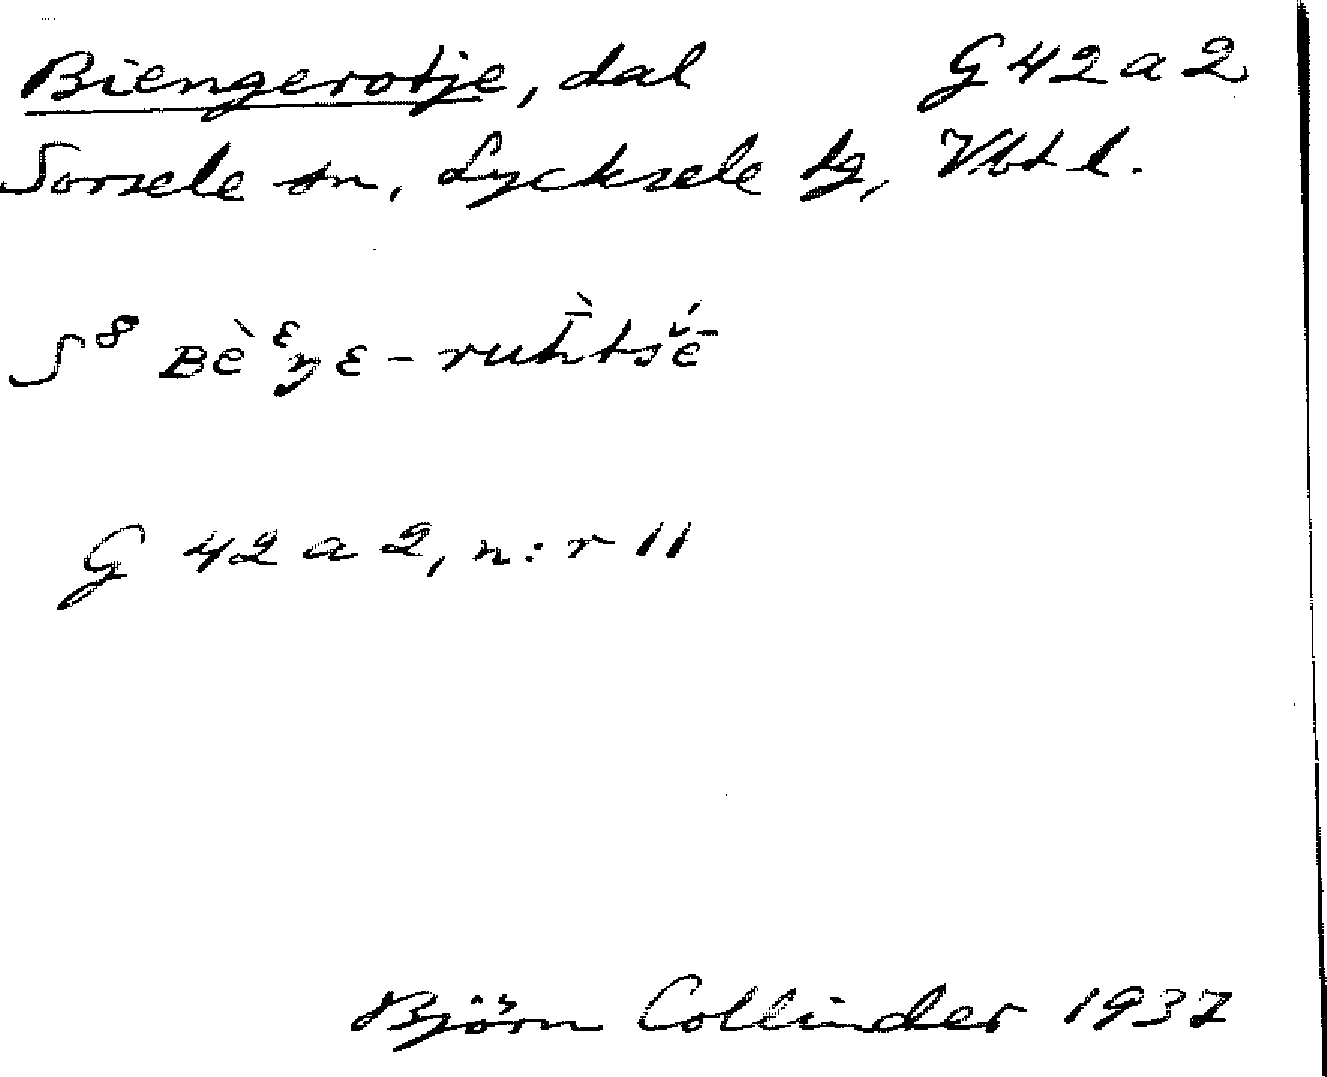 Biengerotje, dal G42a2
Sorsele sn, Lycksele tg, Vbtl.
S⁸ Bèᵋŋɛ-ruh̀tsé̄
G 42 a 2, n:r 11
Björn Collinder 1937